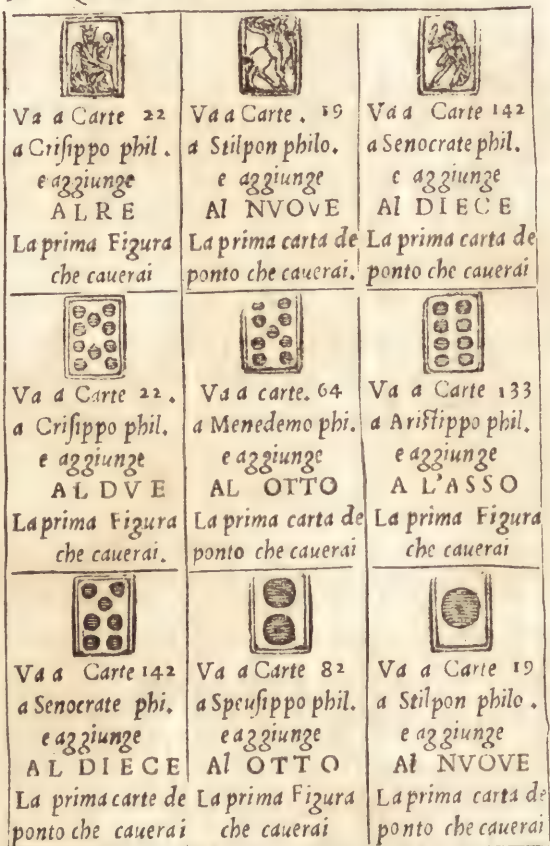 Va a Carte 22
a Criſippo phil.
e aggiunge
AL RE
La prima Figura
che cauerai
Va a Carte. 19
a Stilpon philo.
e aggiunge
Al NVOVE
La prima carta de
ponto che cauerai.
Va a Carte 142
a Senocrate phil.
e aggiunge
Al DIECE
La prima carta de
ponto che cauerai
Va a Carte 22.
a Criſippo phil.
e aggiunge
AL DVE
La prima Figura
che cauerai.
Va a carte. 64
a Menedemo phi.
e aggiunge
AL OTTO
La prima carta de
ponto che cauerai
Va a Carte 133
a Ariſtippo phil.
e aggiunge
A L'ASSO
La prima Figura
che cauerai
Va a Carte 142
a Senocrate phi.
e aggiunge
AL DIECE
La prima carte de
ponto che cauerai
Va a Carte 82
a Speuſippo phil.
e aggiunge
Al OTTO
La prima Figura
che cauerai
Va a Carte 19
a Stilpon philo.
e aggiunge
Al NVOVE
La prima carta de
ponto che cauerai